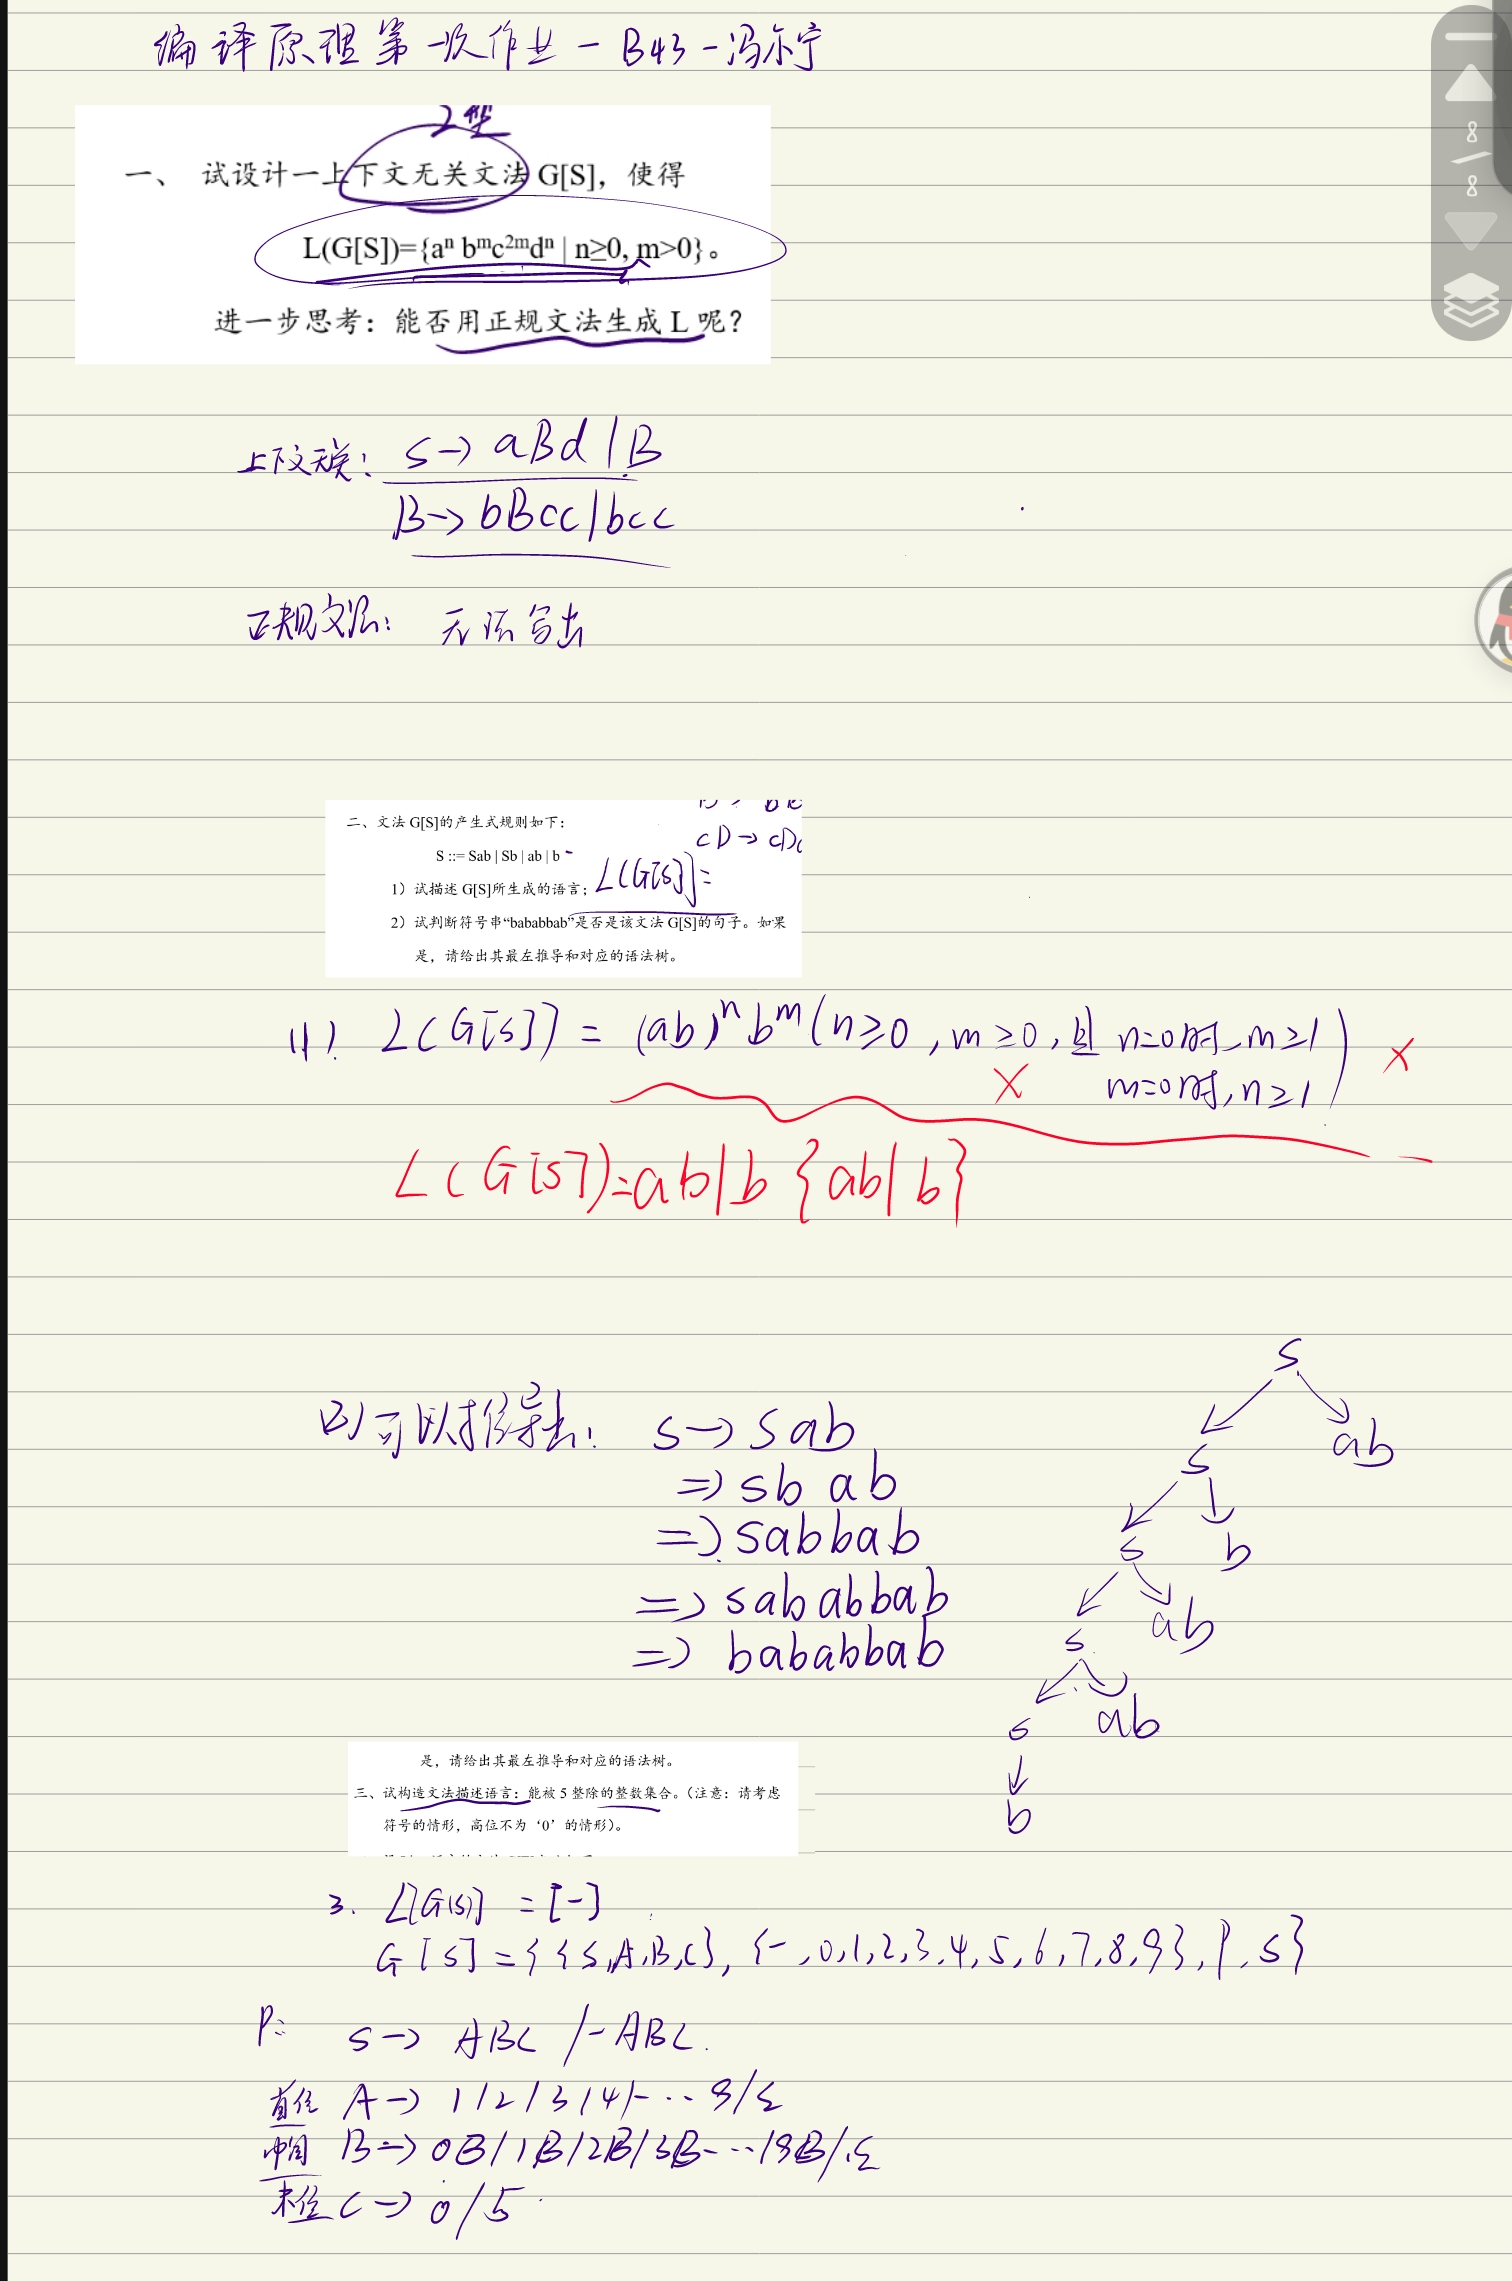 编译原理第一次作业-B43-冯尔宁
2型
一、 试设计一上下文无关文法 G[S]，使得
L(G[S])={aⁿ bᵐc²ᵐdⁿ | n≥0, m>0}。
进一步思考：能否用正规文法生成 L 呢？
8
8
上下文无关: S→ aBd|B
B→ bBcc|bcc
正规文法: 无法写出
二、文法 G[S]的产生式规则如下：
cD→cD
S ::= Sab | Sb | ab | b
1）试描述 G[S]所生成的语言； L(G[S])=
2）试判断符号串“bababbab”是否是该文法 G[S]的句子。如果
是，请给出其最左推导和对应的语法树。
(1) L(G[S]) = (ab)ⁿbᵐ(n≥0, m≥0, 且 n=0时, m≥1
m=0时, n≥1)
L(G[S])=ab|b{ab|b}
(2)可以推导出: S→Sab
⇒Sbab
⇒Sabbab
⇒Sababbab
⇒bababbab
S
S ab
S b
S ab
S ab
b
是，请给出其最左推导和对应的语法树。
三、试构造文法描述语言：能被 5 整除的整数集合。（注意：请考虑
符号的情形，高位不为‘0’的情形）。
3. L[G(S)] = [-]
G[S]={{S,A,B,C},{-,0,1,2,3,4,5,6,7,8,9},P,S}
P: S→ABC/-ABC.
首位 A→1/2/3/4/-…9/ε
中间 B→0B/1B/2B/3B-…/9B/ε
末位 C→0/5